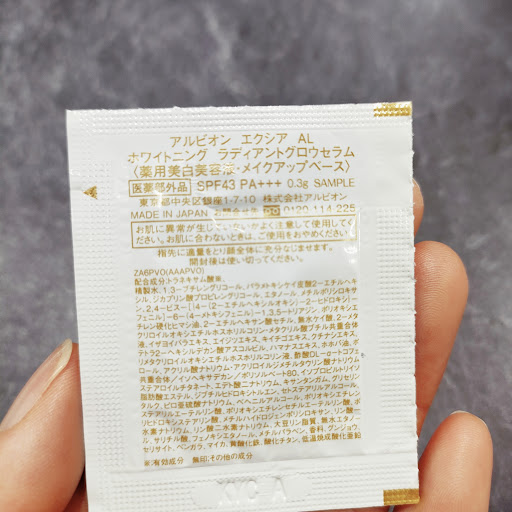 アルビオン エクシア AL
ホワイトニング ラディアントグロウセラム
〈薬用美白美容液・メイクアップベース〉
医薬部外品 SPF43 PA+++ 0.3g SAMPLE
東京都中央区銀座1-7-10 株式会社アルビオン
MADE IN JAPAN お問合せ先 0120-114-225
お肌に異常が生じていないかよく注意して使用してく
ださい。お肌に合わないときは、ご使用をおやめください。
指先に適量をとり顔全体に充分なじませます。
開封後は使い切ってください。
ZA6PVO(AAAPVO)
配合成分:トラネキサム酸※、
精製水、1,3-ブチレングリコール、パラメトキシケイ皮酸2-エチルヘキ
シル、ジカプリン酸プロピレングリコール、エタノール、メチルポリシロキサ
ン、2,4-ビス-[{4-(2-エチルヘキシルオキシ)-2-ヒドロキシ}-
フェニル]-6-(4-メトキシフェニル)-1,3,5-トリアジン、ポリオキシエ
チレン硬化ヒマシ油、2-エチルヘキサン酸セチル、無水ケイ酸、2-メタ
クリロイルオキシエチルホスホリルコリン・メタクリル酸ブチル共重合体
液、イザヨイバラエキス、エイジツエキス、キイチゴエキス、クチナシエキス、
チョウジエキス、トルメンチラエキス、ハマナスエキス、ホホバ油、
テトラ2-ヘキシルデカン酸アスコルビル、
酢酸DL-α-トコフェ
ロール、アクリル酸ナトリウム・アクリロイルジメチルタウリン酸ナトリウム
共重合体/イソヘキサデカン/ポリソルベート80、
エデト酸二ナトリウム、キサンタンガム、グリセリン
脂肪酸エステル、ジブチルヒドロキシトルエン、
タルク、ピロ亜硫酸ナトリウム、ベヘニルアルコール、
水素ナトリウム、リン酸二水素ナトリウム、大豆リン脂質、無水エタノ
ール、サリチル酸、フェノキシエタノール、メチルパラベン、香料、グンジョウ、
セリサイト、ベンガラ、マイカ、黄酸化鉄、酸化チタン、低温焼成酸化亜鉛
※:有効成分 無印:その他の成分
XYC A